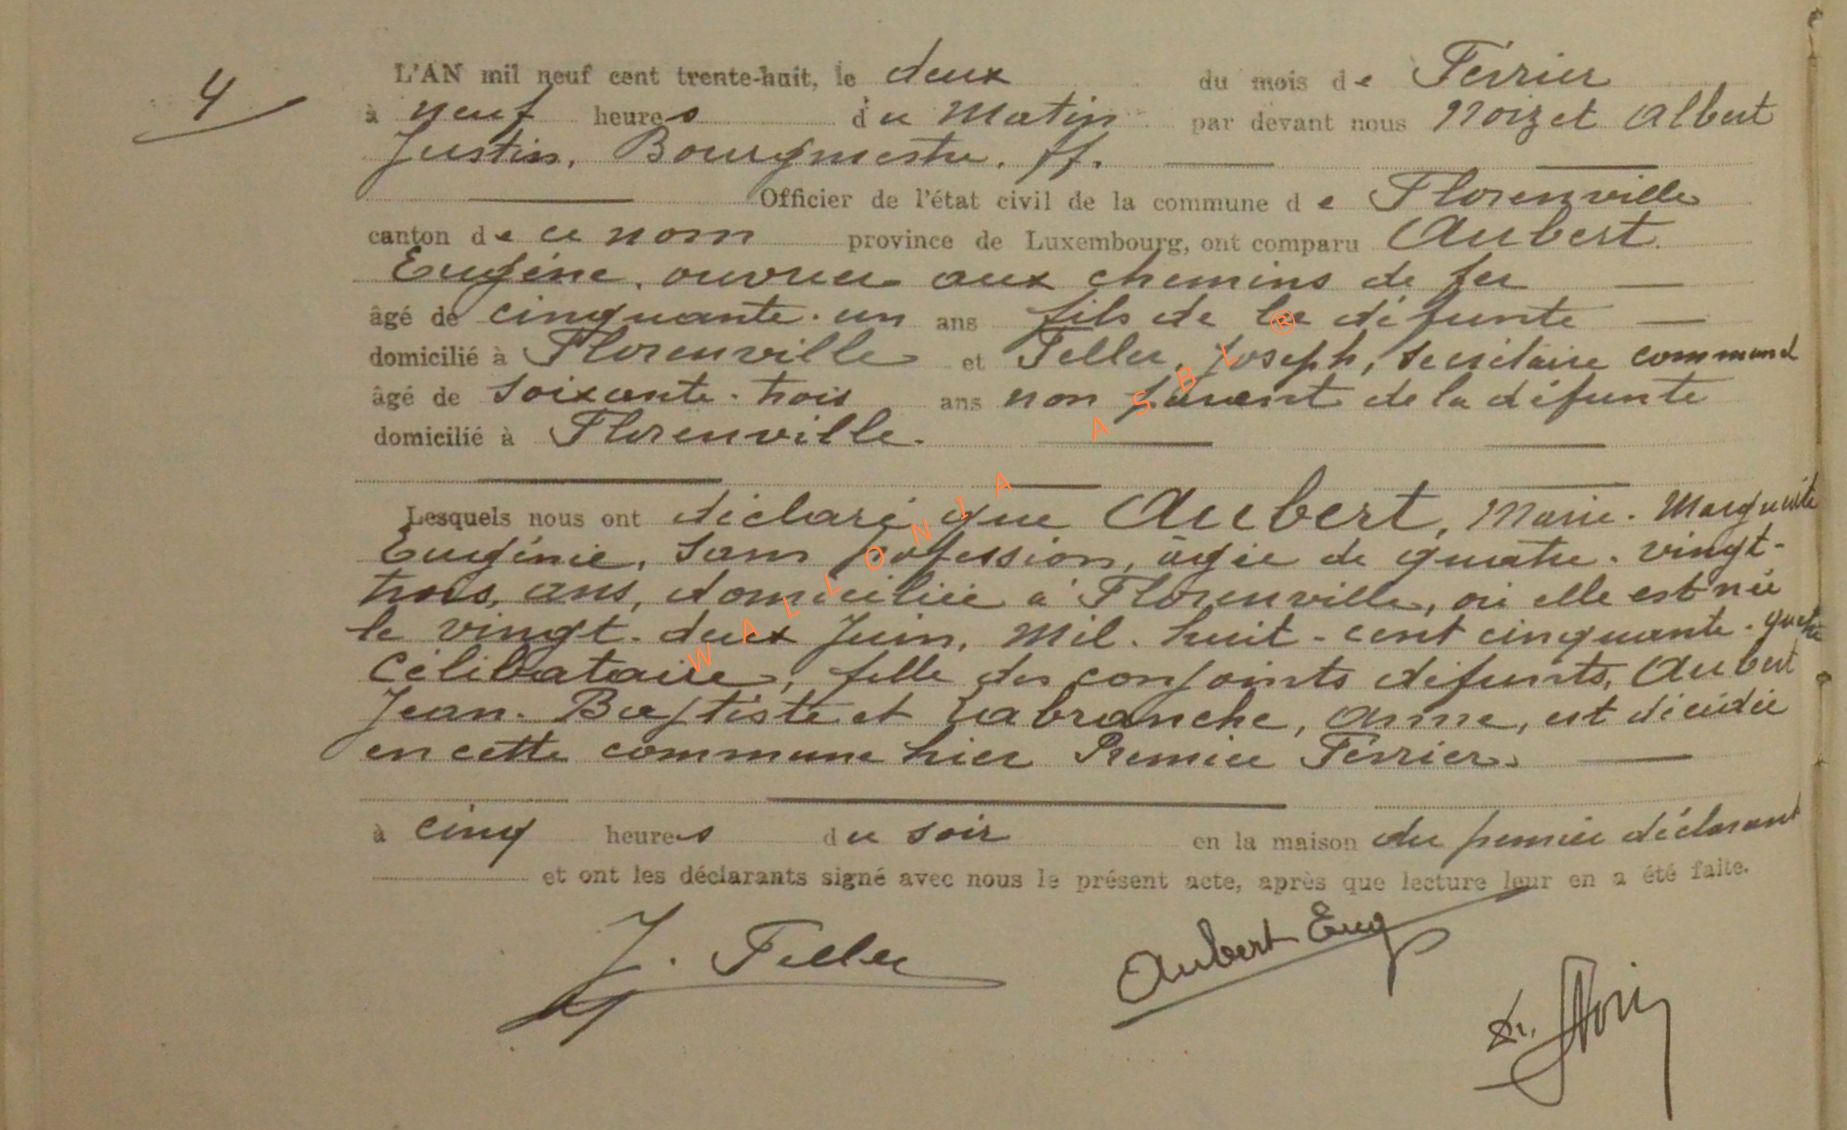 4
L'AN mil neuf cent trente-huit, le deux du mois de Février
à neuf heures du Matin par devant nous Noizet Albert
Justin, Bourgmestre. ff.
Officier de l'état civil de la commune de Florenville
canton de ce nom province de Luxembourg, ont comparu Aubert
Eugène, ouvrier aux chemins de fer
âgé de cinquante-un ans fils de la défunte
domicilié à Florenville et Feller, Joseph, Secrétaire communal
âgé de soixante-trois ans non parent de la défunte
domicilié à Florenville.
Lesquels nous ont déclaré que Aubert, Marie-Marguerite
Eugénie, sans profession, âgée de quatre-vingt-
trois ans, domiciliée à Florenville, où elle est née
le vingt-deux Juin, Mil-huit-cent cinquante-quatre
Célibataire, fille des conjoints défunts, Aubert
Jean-Baptiste et Labranche, Anne, est décédée
en cette commune hier Premier Février.
à cinq heures du soir en la maison du premier déclarant
et ont les déclarants signé avec nous le présent acte, après que lecture leur en a été faite.
J. Feller
Aubert Eug
WALLONIA ASBL ®